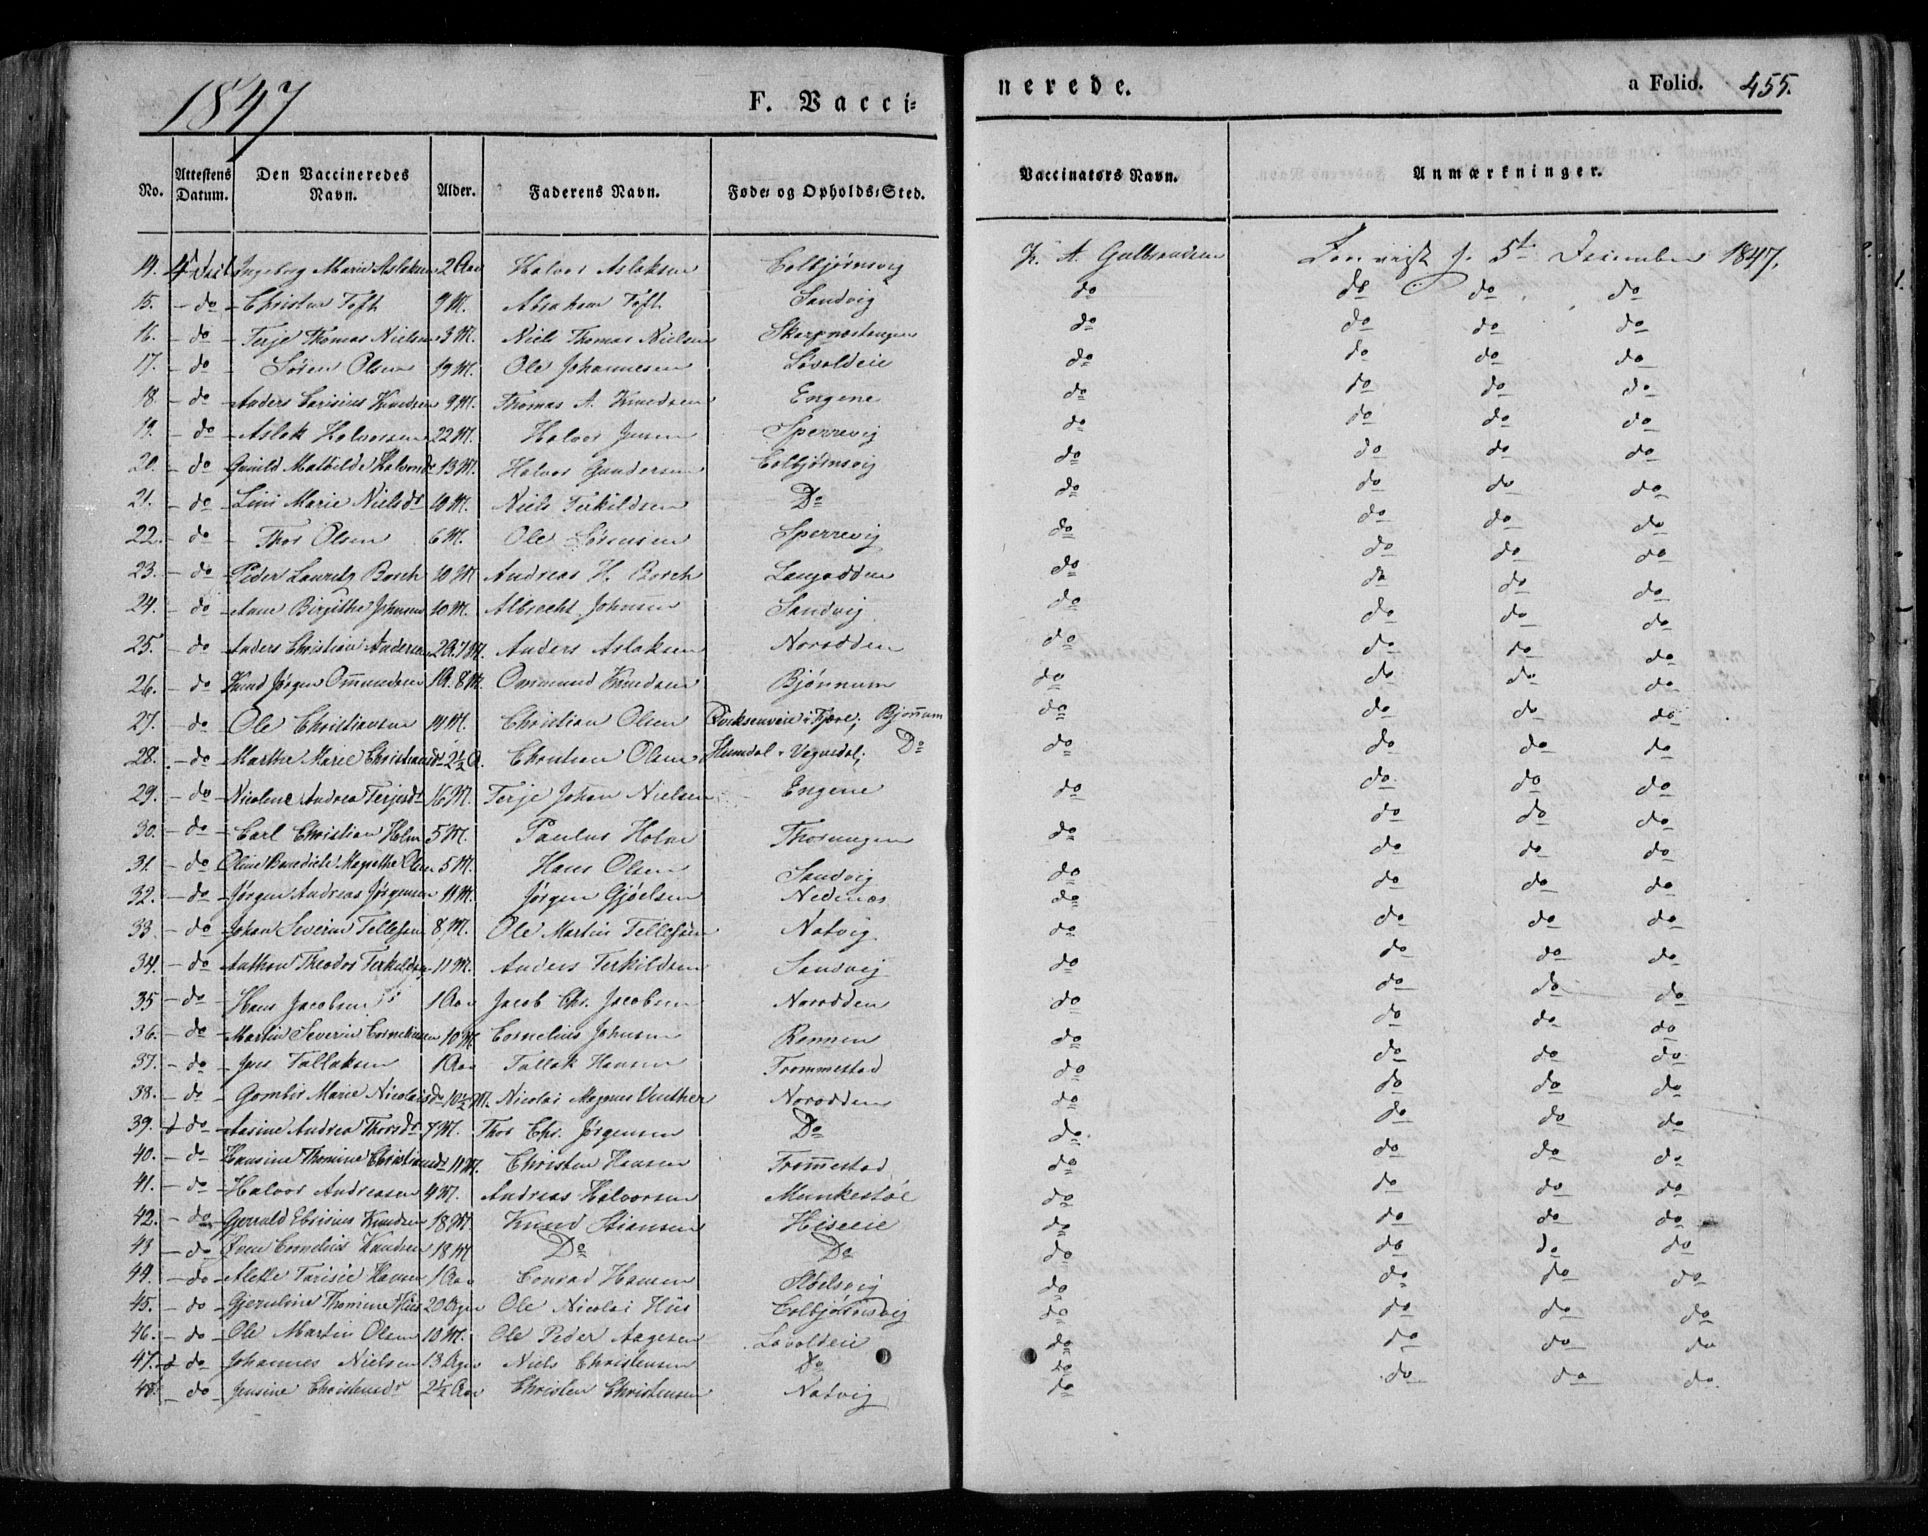 1847
F. Vacci-
nerede.
a Folio. 455.
No. Attestens Datum. Den Vaccineredes Navn. Alder. Faderens Navn. Føde- og Opholds-Sted. Vaccinators Navn. Anmærkninger.
14. Ingeborg Marie Aslaksen 2 Aar Halvor Aslaksen Colbjørnsvig K. A. Gulbrandsen 5te December 1847.
15. - do - Christen Toft 9 M. Abraham Toft Sandvig do do do do
16. - do - Terje Thomas Nielsen 3 M. Niels Thomas Nielsen Skarpnæstangen do do do do
17. - do - Søren Olsen 19 M. Ole Johannesen Løvoldeie do do do do
18 - do - Anders Knudsen 9 M. Thomas A. Knudsen Engene do do do do
19. - do - Aslak Halvorsen 22 M. Halvor Jensen Sperrevig do do do do
20. - do Gunild Mathilde Halvorsdr 13 M. Halvor Gundersen Colbjørnsvig do do do do
21. - do - Marie Nielsdr 10 M. Niels Terkildsen Do do do do do
22. - do - Thor Olsen 6 M. Ole Sørensen Sperrevig do do do do
23. - do - Peder Lauritz Borch 10 M Andreas H. Borch Langodden do do do do
24. - do - Anne Birgithe Johnsen 10 M. Albrecht Johnsen Sandvig do do do do
25. - do - Anders Christian Andersen 2 A. 7 M. Anders Aslaksen Norodden do do do do
26. - do Knud Jørgen Ommundsen 1 A. 8 M. Ommund Knudsen Bjønnum do do do do
27. - do - Ole Christiansen 14 M. Christian Olsen i Fjære; Bjønnum do do do do
28. - do - Marthe Marie Christiansdr 2½ A. Christian Olsen Do do do do do
29. - do - Nicoline Andrea Terjesdr 16 M. Terje Johan Nielsen Engene do do do do
30. - do - Carl Christian Holm 5 M. Paulus Holm Thorungen do do do do
31. - do Oline Benedicte Magrethe Olsen 5 M. Hans Olsen Sandvig do do do do
32. - do - Jørgen Andreas Jørgensen 11 M. Jørgen Gjøelsen Nedenæs do do do do
33. - do - Johan Severin Tellefsen 8 M. Ole Martin Tellefsen Natvig do do do do
34. - do Anthon Theodor Terkildsen 11 M. Anders Terkildsen Sandvig do do do do
35 - do - Hans Jacobsen 1 Aar Jacob Chr. Jacobsen Norodden do do do do
36. - do - Martin Severin Corneliusen 10 M. Cornelius Johnsen Rønnen do do do do
37. - do - Jens Tallaksen 1 Aar Tallak Hansen Frommestad do do do do
38. - do Gombir Marie Nicolaisdr 10½ M. Nicolai Magnus Venther Norodden do do do do
39. - do - Aasine Andrea Thorsdr 7 M. Thor Chr. Jørgensen Do do do do do
40. - do Hansine Thomine Christiansdr 11 M. Christen Hansen Frommestad do do do do
41. - do - Halvor Andreasen 4 M. Andreas Halvorsen Munkestøe do do do do
42. - do Knudsen 18 M Knud Stiansen Hiseeie do do do do
43 - do Even Cornelius Knudsen 18 M Do Do do do do do
44. - do - Hansen 1 Aar Conrad Hansen Støelsvig do do do do
45. - do Gjeruline Thomine Hiis 20 Ole Nicolai Hiis Colbjørnsvig do do do do
46. - do - Ole Martin Olsen 10 M. Ole Peder Aagesen Løvoldeie do do do do
47. - do - Johannes Nielsen 13 Niels Christensen Do do do do do
48. - do Jensine Christensdr 2½ Aar Christen Christensen Natvig do do do do